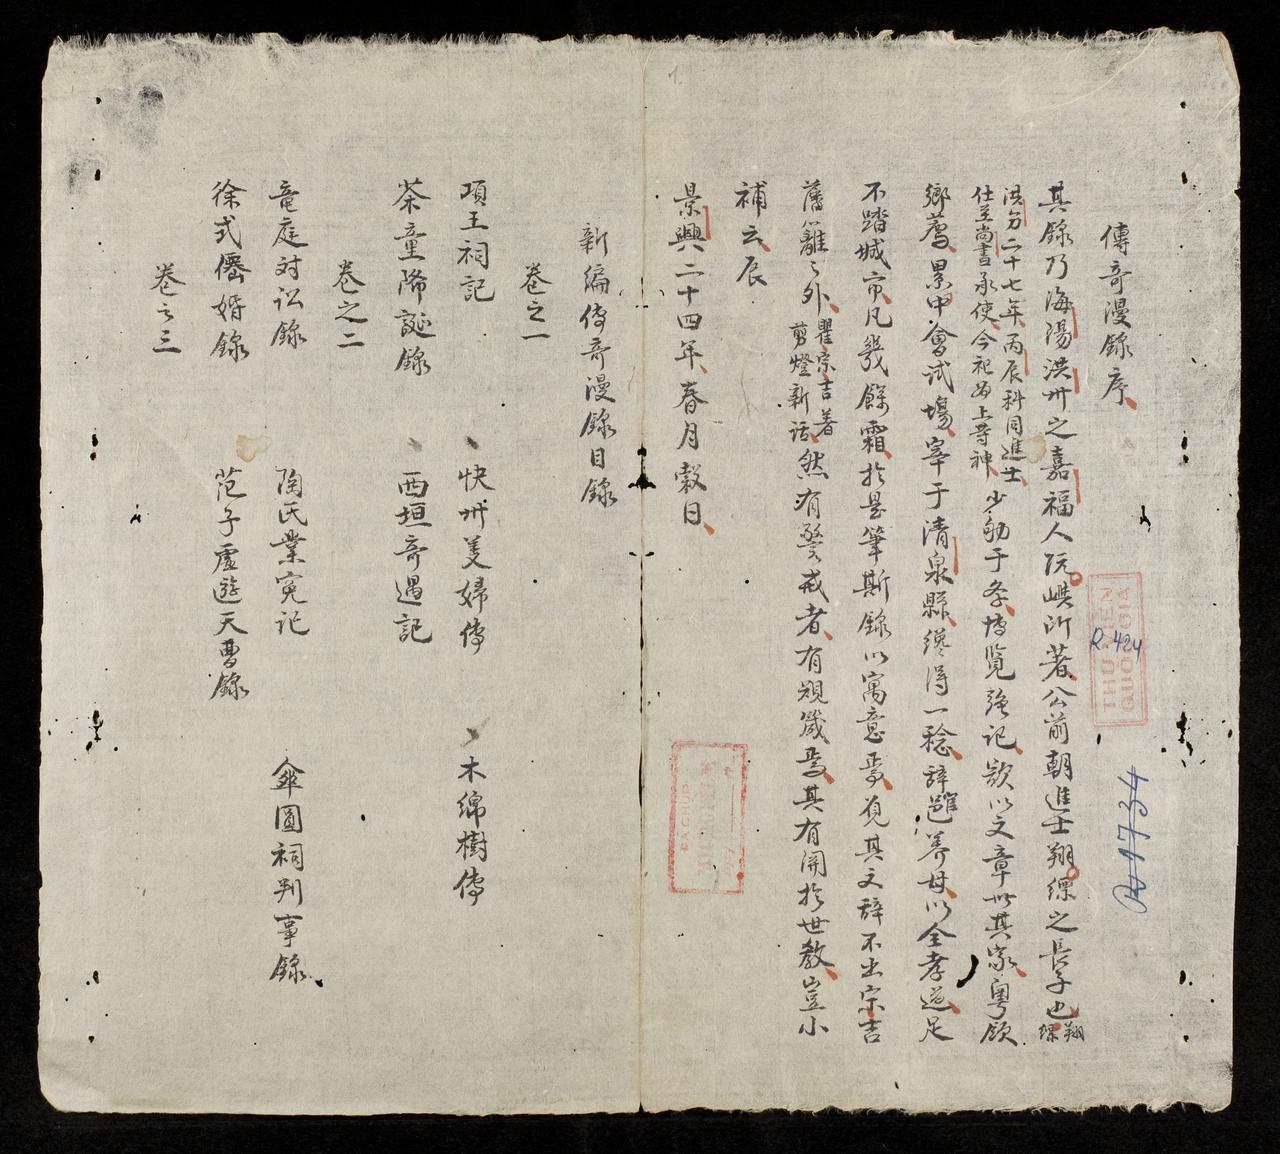 傳奇漫錄序
其錄乃海陽洪州之嘉福人阮嶼所著公前朝進士翔縹之長子也翔縹
洪分二十七年丙辰科同進士
仕至尚書承使今祀為上等神
少劬于學博覽強記欲以文章世其家粵領
鄉薦累中會試塲宰于清泉縣纔得一稔辭邑養母以全孝道足
不踏城市凡幾餘霜於是筆斯錄以寓意焉覓其文辭不出宗吉
藩籬之外
瞿宗吉著
剪燈新話
然有警戒者有規箴焉其有關於世教豈小
補云辰
景興二十四年春月穀日
新編傳奇漫錄目錄
卷之一
項王祠記
快州美婦傳
木綿樹傳
茶童降誕錄
西垣奇遇記
卷之二
竜庭对訟錄
陶氏業寃記
傘圓祠判事錄
徐式僊婚錄
范子虛遊天曹錄
卷之三
1.
THU VIEN
QUOC GIA
R.424
R 1734
DA CHUP
MICROFILM